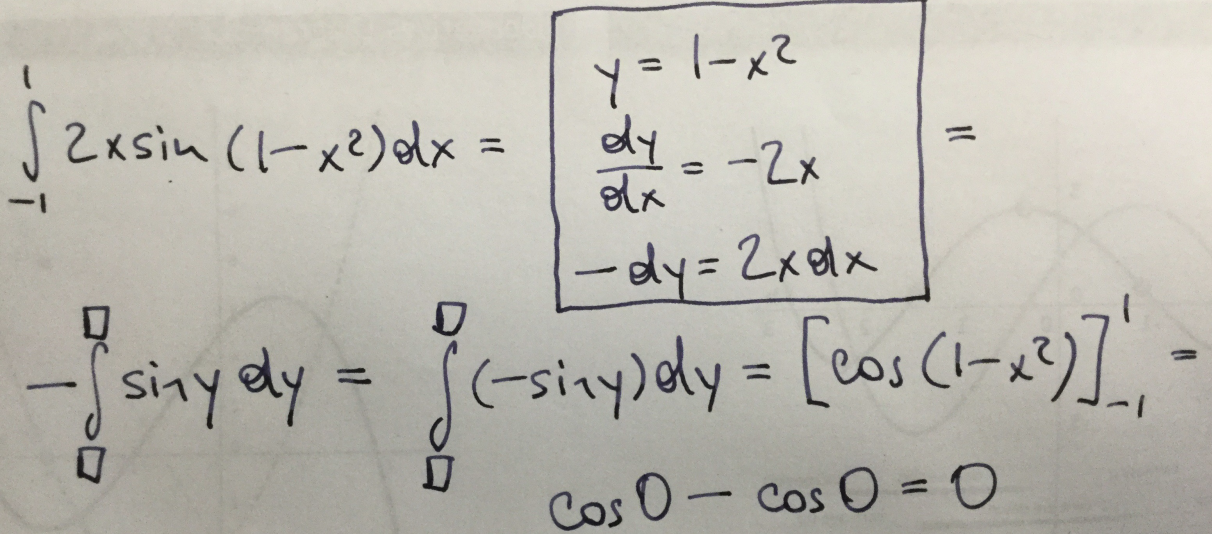 ∫₋₁¹ 2x sin (1-x²) dx =
y = 1-x²
dy/dx = -2x
-dy = 2x dx
=
-∫_□^□ sin y dy = ∫_□^□ (-sin y) dy = [cos (1-x²)]₋₁¹ =
cos 0 - cos 0 = 0